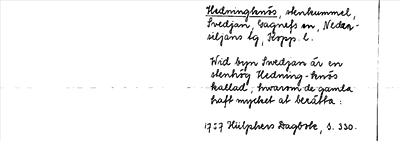 Hedningknös, stenkummel,
Svedjan, Gagnefs sn, Nedan-
siljans lg, Kopp. l.
Wid byn Swedjan är en
stenhög Hedning-knös
kallad, hwarom de gamla
haft mycket at berätta:
1757 Hülphers Dagbok, s. 330.